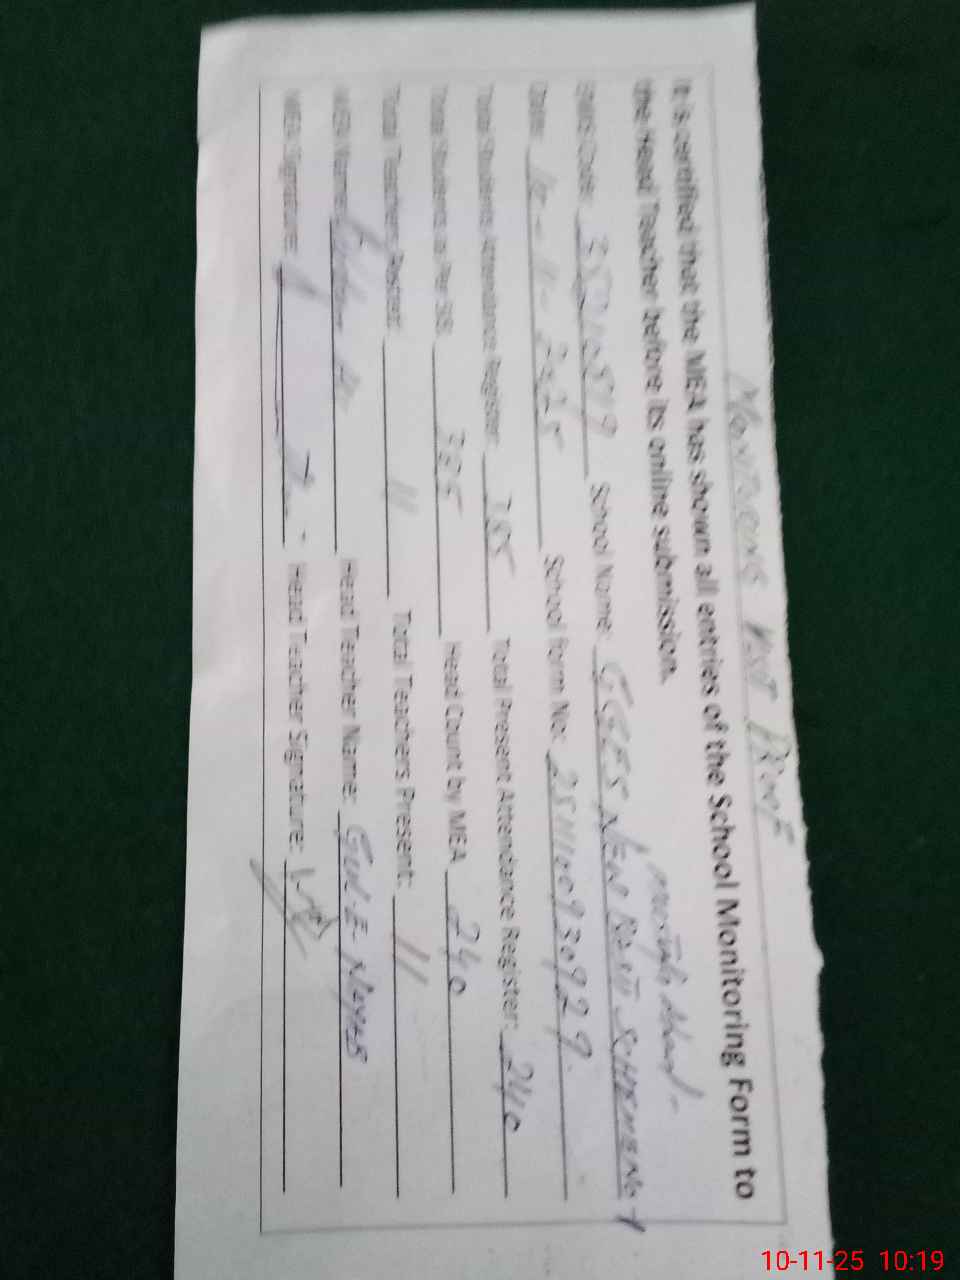 MONITORING VISIT PROOF
It is certified that the MEA has shown all entries of the School Monitoring Form to
the Head Teacher before its online submission.
EMIS Code: School Name: GGES NEW RAVI SCHEME NO 1
Date: 10-11-2025 School form No: 25111009 30929
Total Students Attendance Register: 385 Total Present Attendance Register: 240
Total Students as Per SIS: 385 Head Count by MEA 240
Total Teachers Poster: 11 Total Teachers Present: 11
MEA Name: Head Teacher Name: GUL-E-NAYAB
MEA Signature: Head Teacher Signature:
10-11-25 10:19